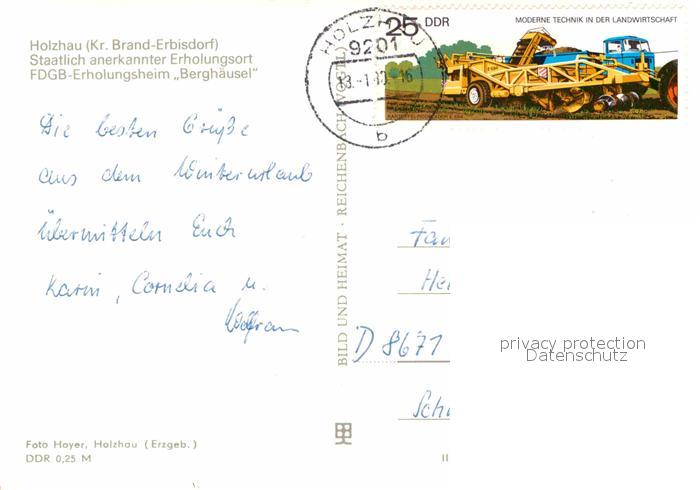 Holzhau (Kr. Brand-Erbisdorf)
Staatlich anerkannter Erholungsort
FDGB-Erholungsheim „Berghäusel"
Die besten Grüße
aus dem Winterurlaub
übermitteln Euch
Karin, Cornelia u.
Wolfram
Foto Hoyer, Holzhau (Erzgeb.)
DDR 0,25 M
BILD UND HEIMAT · REICHENBACH
HOLZHAU
9201
b
25 DDR
MODERNE TECHNIK IN DER LANDWIRTSCHAFT
Fam
He
D 8671
Sch
II
privacy protection
Datenschutz